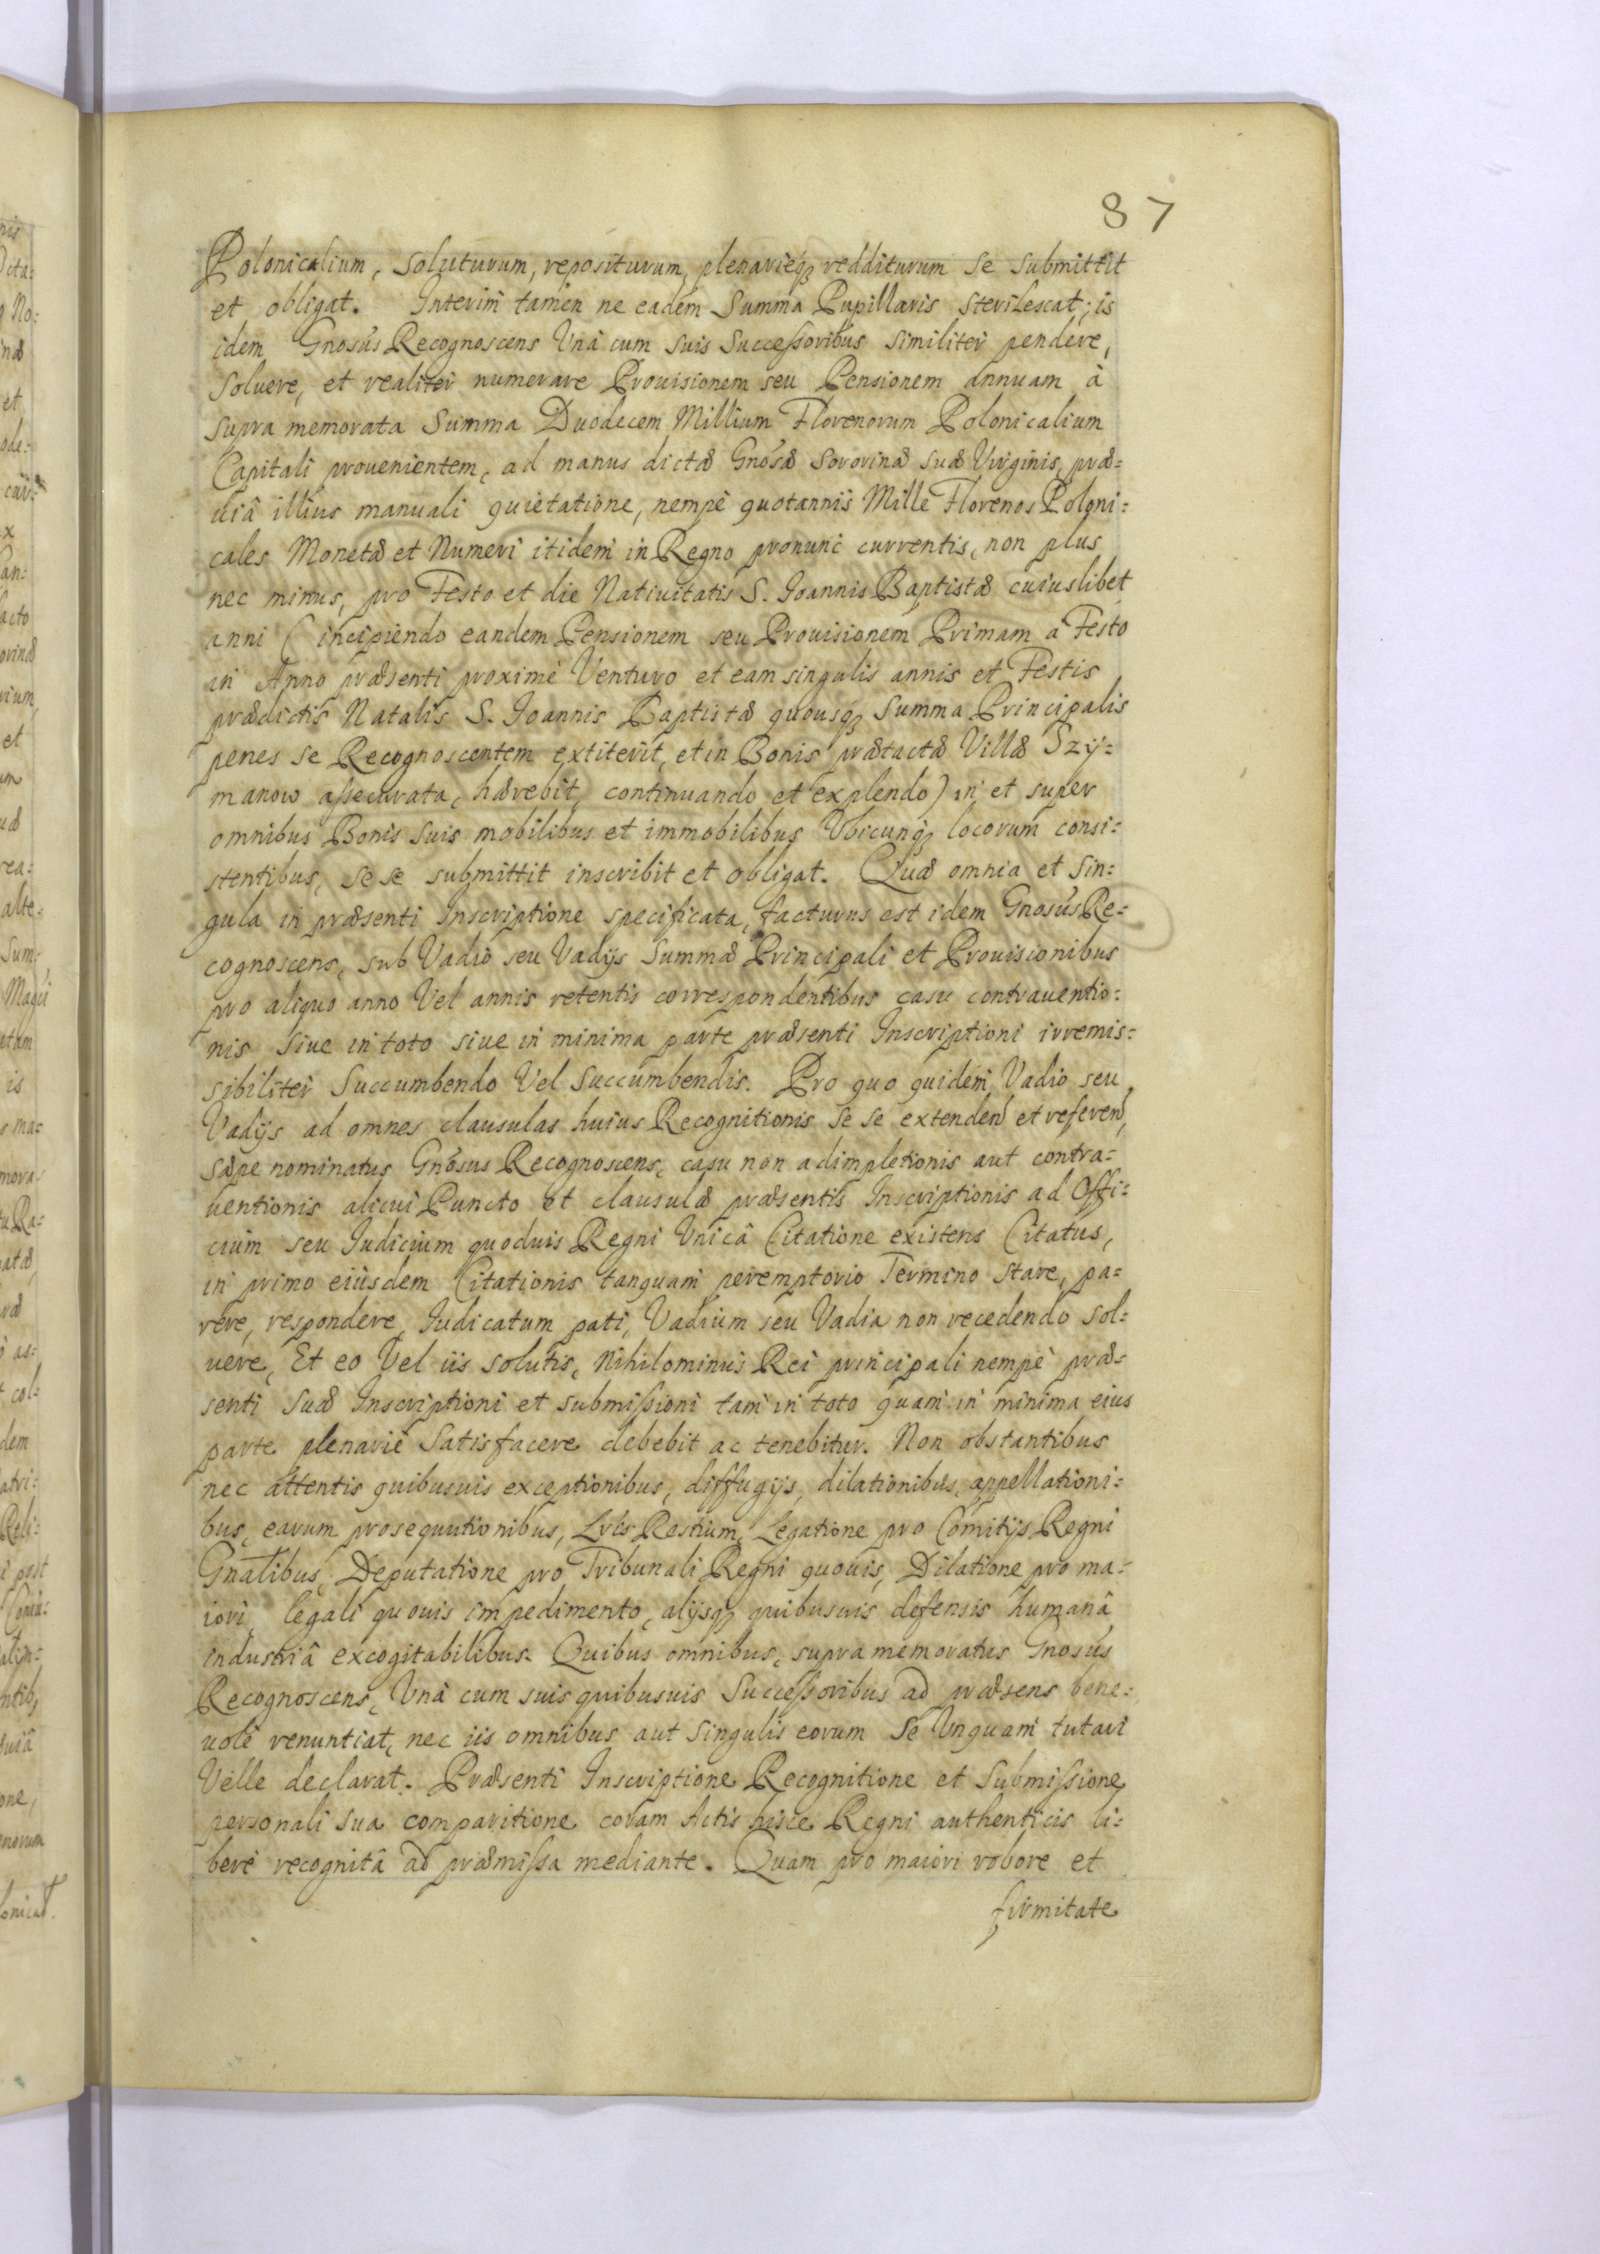 87
Polonicalium, soluturum, repositurum, plenarieq3 redditurum se submittit
et obligat. Interim tamen ne eadem Summa Pupillaris sterilescat; is
idem Gnosus Recognoscens Unà cum suis Successoribus similiter pendere,
soluere, et realiter numerare Prouisionem seu Pensionem annuam à
supra memorata Summa Duodecem Millium Florenorum Polonicalium
Capitali prouenientem, ad manus dictæ Gnosæ Sororinæ suæ Virginis, præ=
uiâ illius manuali quietatione, nempè quotannis Mille Florenos Poloni=
cales Monetæ et Numeri itidem in Regno pronunc currentis, non plus
nec minus, pro Festo et die Natiuitatis S. Ioannis Baptistæ cuiuslibet
anni (incipiendo eandem Pensionem seu Prouisionem Primam à Festo
in Anno præsenti proximè Venturo et eam singulis annis et Festis
prædictis Natalis S. Ioannis Baptistæ quousq3 Summa Principalis
penes se Recognoscentem extiterit, et in Bonis prætactæ Villæ Szy=
manow assecurata, hærebit, continuando et explendo) in et super
omnibus Bonis suis mobilibus et immobilibus Ubicunq3 locorum consi=
stentibus, se se submittit inscribit et obligat. Quæ omnia et sin=
gula in præsenti Inscriptione specificata, facturus est idem Gnosus Re=
cognoscens, sub Vadio seu Vadijs Summæ Principali et Prouisionibus
pro aliquo anno Vel annis retentis correspondentibus casu contrauentio=
nis siue in toto siue in minima parte præsenti Inscriptioni irremis=
sibiliter Succumbendo Vel Succumbendis. Pro quo quidem Vadio seu
Vadijs ad omnes clausulas huius Recognitionis se se extenden et referen,
sæpe nominatus Gnosus Recognoscens, casu non adimpletionis aut contra=
uentionis alicui Puncto et clausulæ præsentis Inscriptionis ad Offi=
cium seu Iudicium quoduis Regni Unicâ Citatione existens Citatus,
in primo eiusdem Citationis tanquam peremptorio Termino stare, pa=
rere, respondere, Iudicatum pati, Vadium seu Vadia non recedendo sol=
uere, Et eo Vel iis solutis, nihilominus Rei principali nempè præ=
senti suæ Inscriptioni et submissioni tam in toto quam in minima eius
parte plenariè satisfacere debebit ac tenebitur. Non obstantibus
nec attentis quibusuis exceptionibus, diffugijs, dilationibus, appellationi=
bus, earum prosequutionibus, Lris Restium, Legatione pro Comitijs Regni
Gnalibus, Deputatione pro Tribunali Regni quouis, Dilatione pro ma=
iori, legali quouis impedimento, alijsq3 quibusuis defensis humanâ
industriâ excogitabilibus. Quibus omnibus, supra memoratus Gnosus
Recognoscens, Unà cum suis quibusuis Successoribus ad præsens bene=
uolè renuntiat, nec iis omnibus aut singulis eorum se Unquam tutari
Velle declarat. Præsenti Inscriptione Recognitione et Submissione
personali sua comparitione coram Actis hisce Regni authenticis li=
berè recognitâ ad præmissa mediante. Quam pro maiori robore et
firmitate